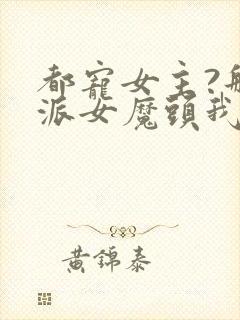 都寵女主?
派女魔頭我
黃錦泰